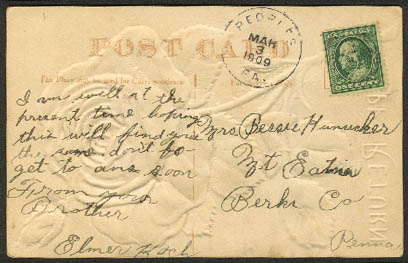 POST CARD
PEOPLES
MAR
3
1909
PA.
ONE CENT
This Place may be used for Correspondence
I am well at the
present time hoping
this will find you
the same. dont fo-
get to ans soon
From your
Brother
Elmer
Mrs Bessie Hunsicker
Mt Eatna
Berks Co
Penna